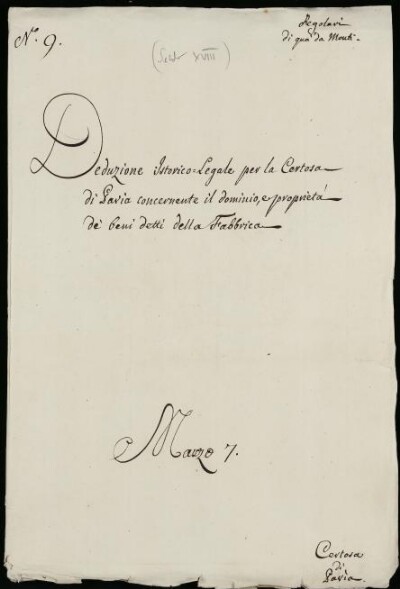 N.º 9.
Regolari
di quà da Monti.
(Sec. XVIII)
Deduzione istorico=Legale per la Certosa
di Pavia concernente il dominio, e proprietà
de' beni detti della Fabbrica
Marzo 7.
Certosa
di
Pavia.